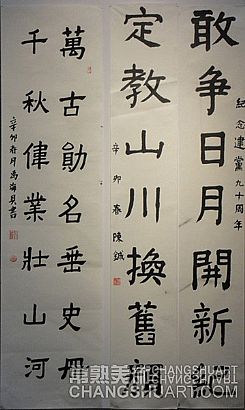 紀念建黨九十周年
敢争日月開新
定教山川換舊顏
辛卯春陳
萬古勛名垂史冊
千秋偉業壯山河
辛卯春月馮海良書
常熟美術
CHANGSHUART